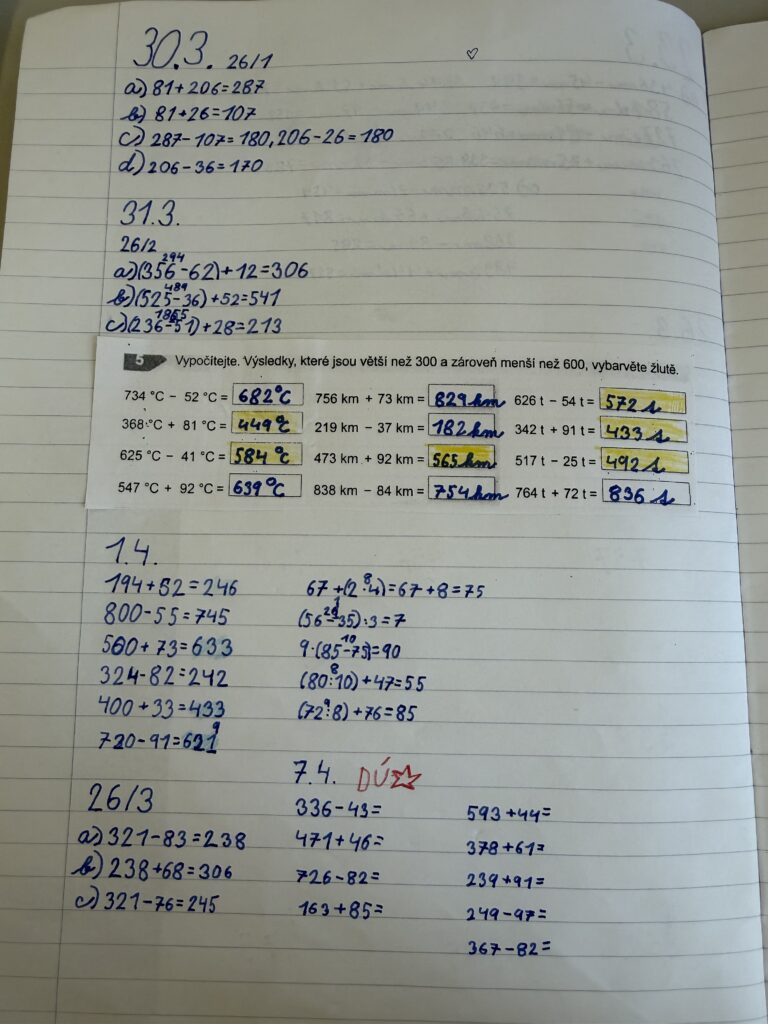 30.3. 26/1
a) 81+206=287
b) 81+26=107
c) 287-107=180, 206-26=180
d) 206-36=170
31.3.
26/2
294
a) (356-62)+12=306
489
b) (525-36)+52=541
c) (236-51)+28=213
5 Vypočítejte. Výsledky, které jsou větší než 300 a zároveň menší než 600, vybarvěte žlutě.
734 °C - 52 °C = 682°C 756 km + 73 km = 829 km 626 t - 54 t = 572 t
368 °C + 81 °C = 449°C 219 km - 37 km = 182 km 342 t + 91 t = 433 t
625 °C - 41 °C = 584°C 473 km + 92 km = 565 km 517 t - 25 t = 492 t
547 °C + 92 °C = 639°C 838 km - 84 km = 754 km 764 t + 72 t = 836 t
1.4.
194+52=246
800-55=745
560+73=633
324-82=242
400+33=433
720-91=621
9
8
67+(2·4)=67+8=75
(56-35):3=7
10
9·(85-75)=90
8
(80:10)+47=55
9
(72:8)+76=85
26/3
a) 321-83=238
b) 238+68=306
c) 321-76=245
7.4. DÚ
336-43=
471+46=
726-82=
163+85=
593+44=
378+61=
239+91=
249-97=
367-82=